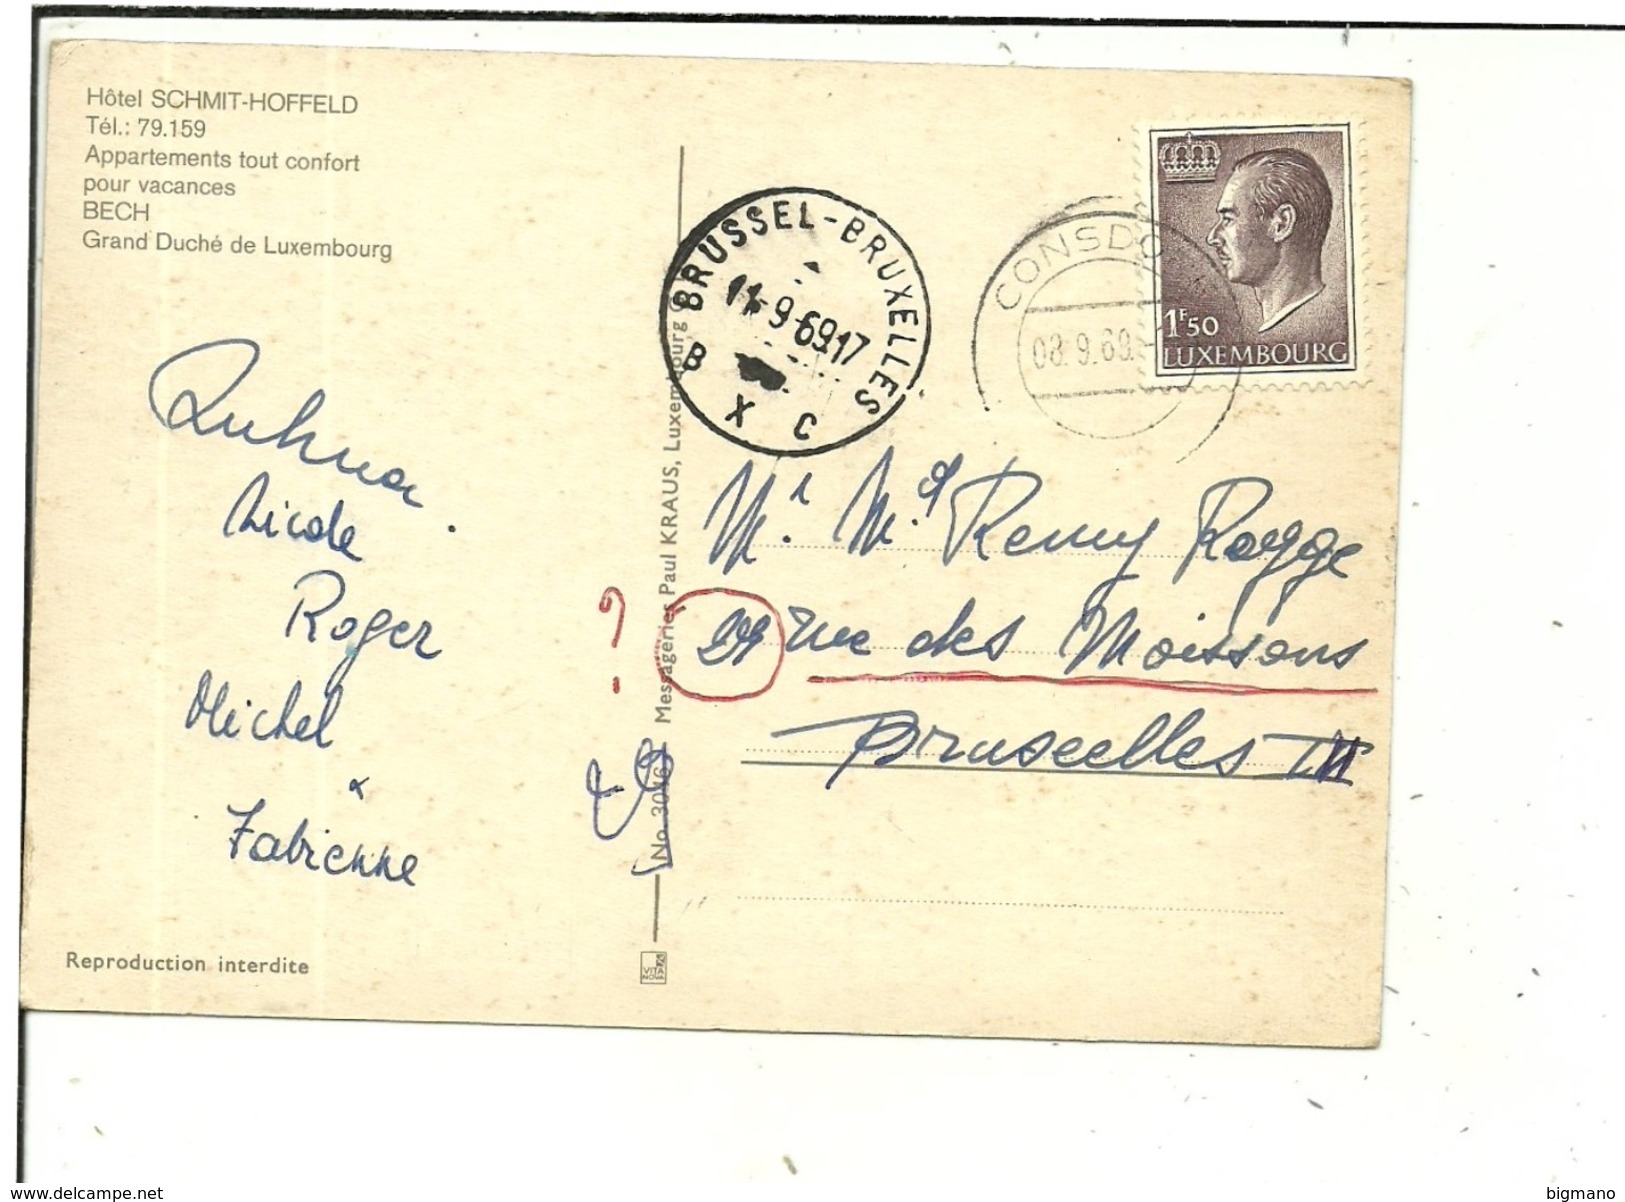 Hôtel SCHMIT-HOFFELD
Tél.: 79.159
Appartements tout confort
pour vacances
BECH
Grand Duché de Luxembourg
Nicole
Roger
Michel
&
Fabienne
Reproduction interdite
No. 3046 Messageries Paul KRAUS, Luxembourg
VITA NOVA
BRUSSEL-BRUXELLES
11-9-69.17
B X C
CONSDO
08.9.69.
1F50
LUXEMBOURG
Mr. Md Remy Rogge
?
rue des Moissons
Bruxelles
www.delcampe.net
bigmano